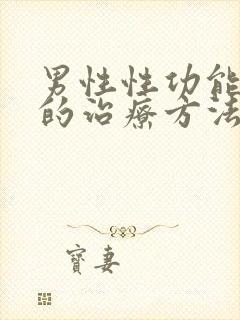 男性性功能
的治療方法
寶妻